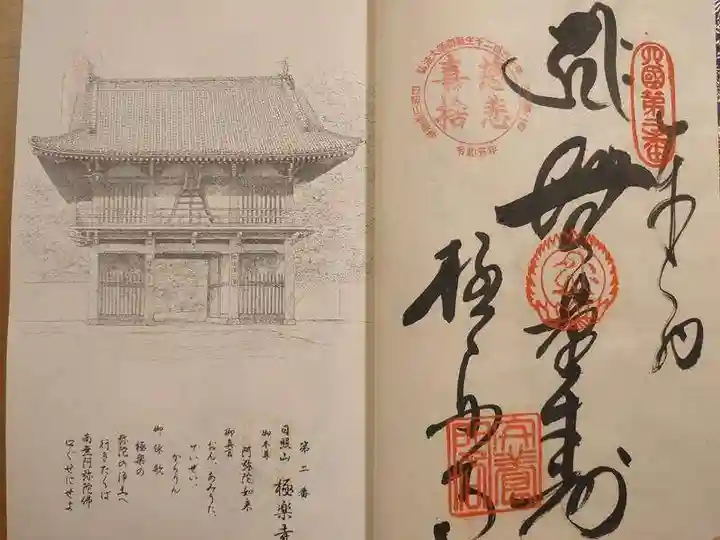 奉拝
無量寿
極楽寺
四國第二番
慈悲
喜捨
安養
第二番
日照山 極楽寺
御本尊
阿弥陀如来
御真言
おん、あみりた、
ていせい、
からうん
御詠歌
極楽の
弥陀の浄土へ
行きたくば
南無阿弥陀佛
口ぐせにせよ